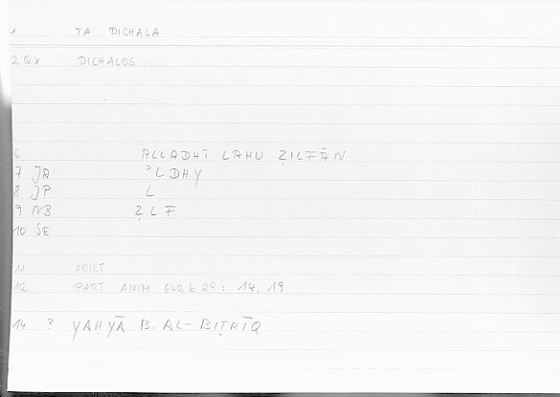 1 TA DICHALA
2 GX DICHALOS
6 ALLADHĪ LAHU ẒILFĀN
7 JA ʾLDHY
8 JP L
9 NB ẒLF
10 SE
11 ARIST
12 PART ANIM 642 b 29 : 14. 19
14 ? YAḤYĀ B. AL-BIṬRĪQ